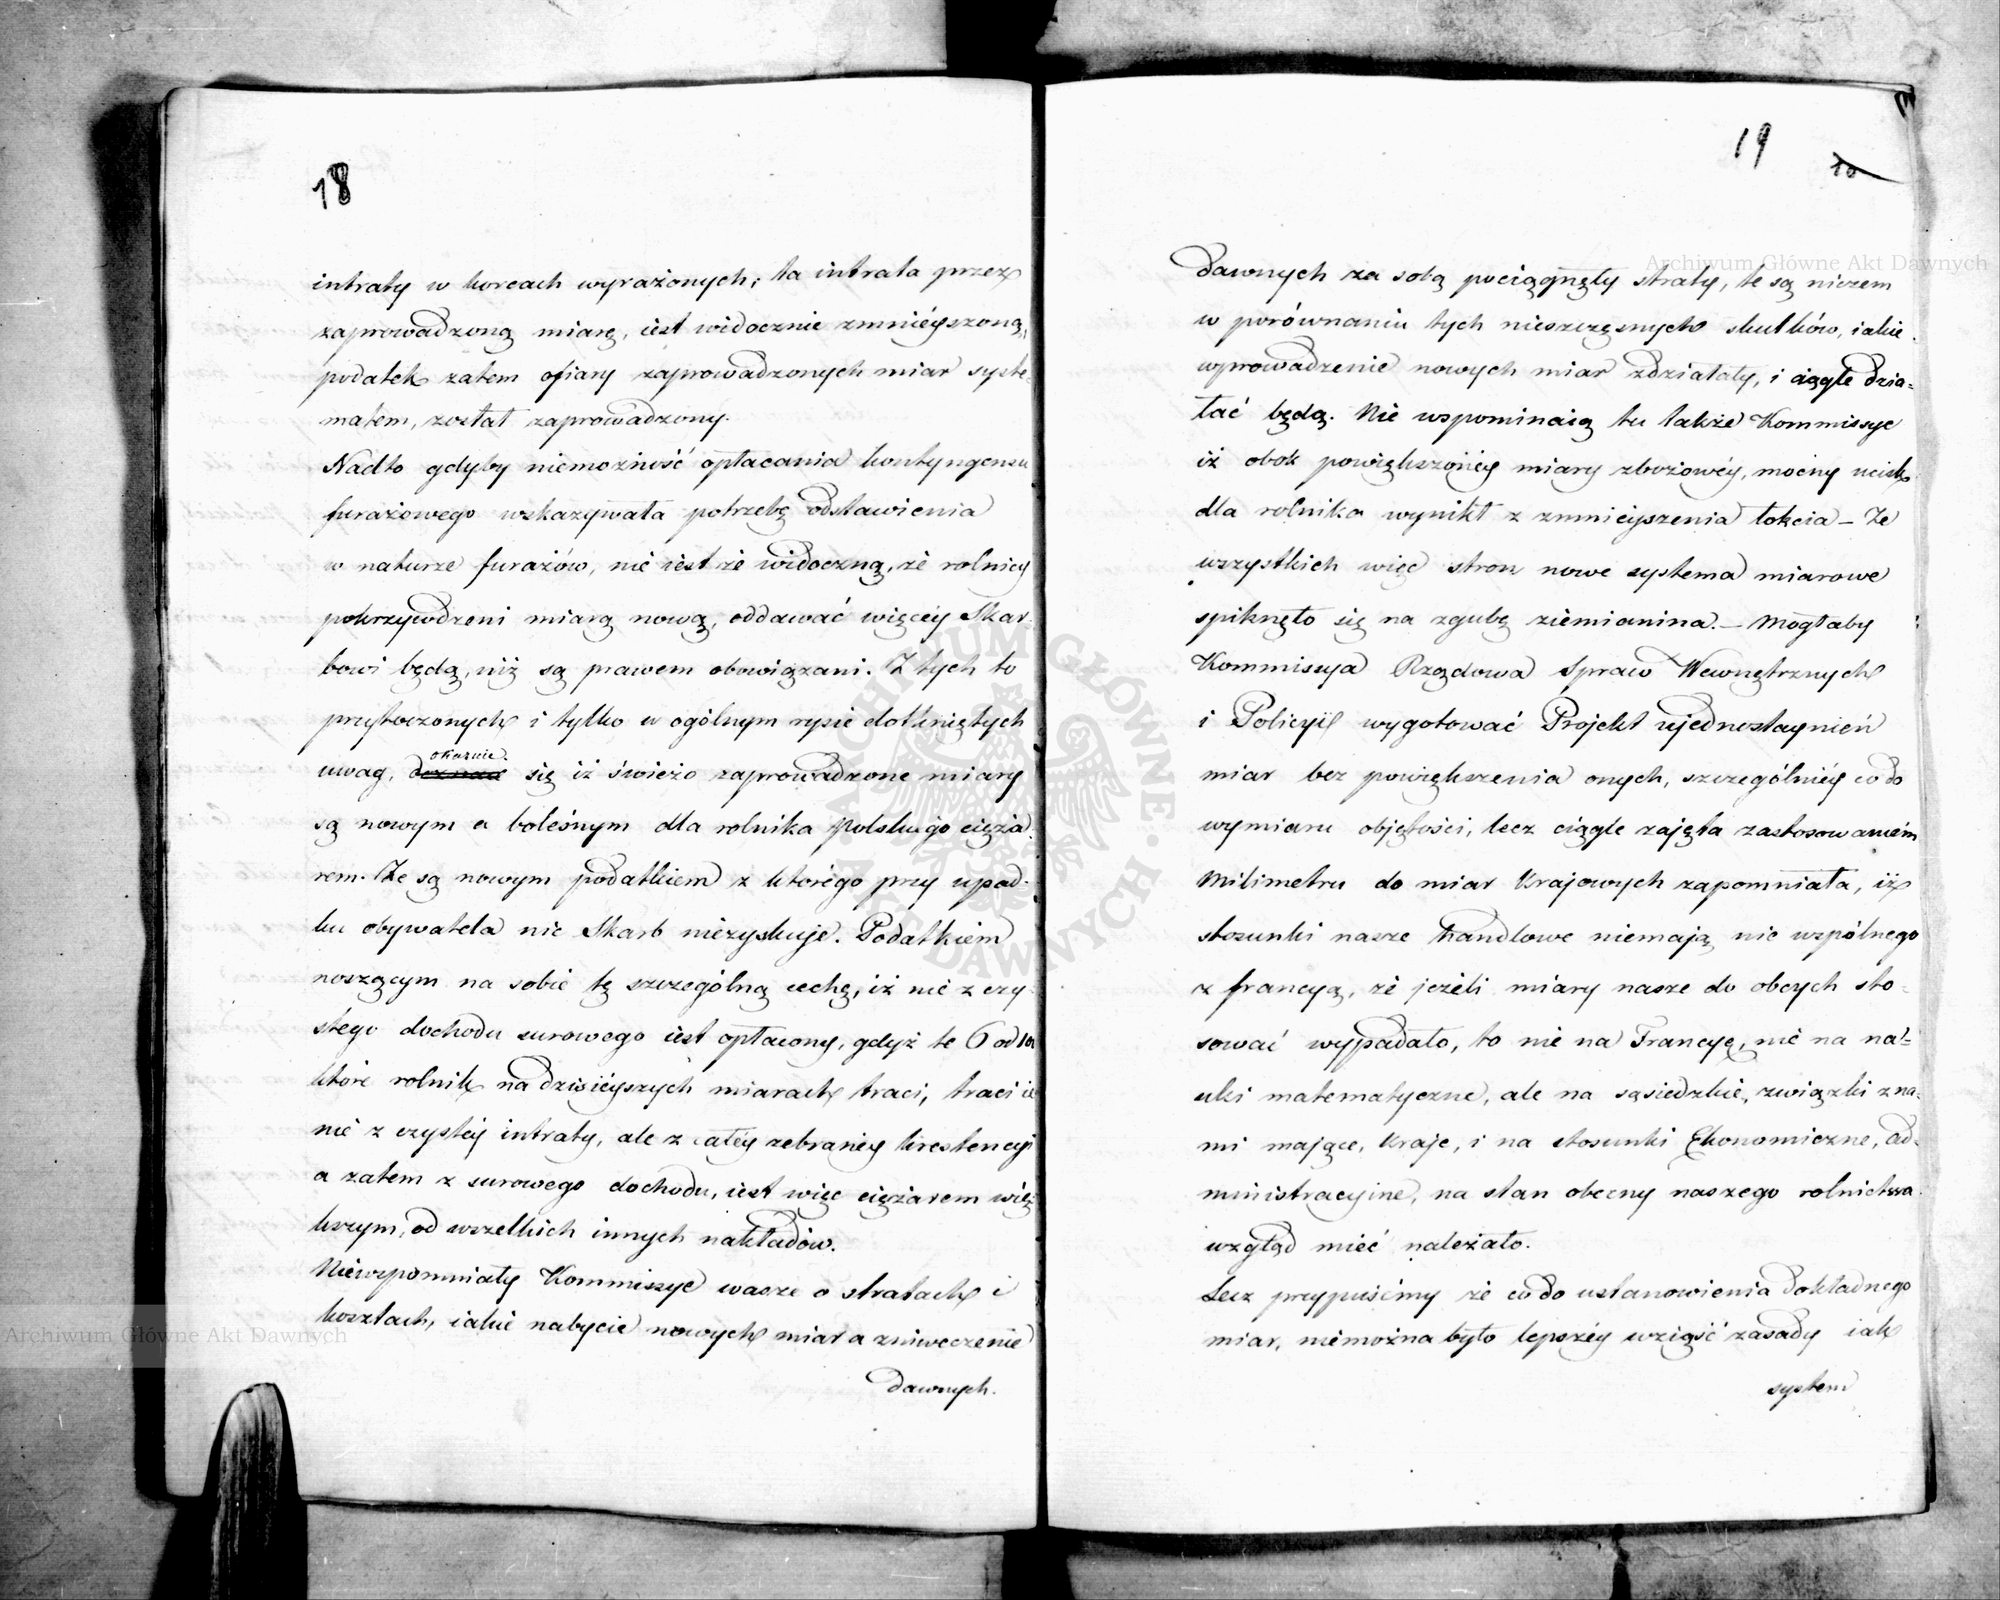 18
intraty w korcach wyrażonych; ta intrata przez
zaprowadzoną miarę, iest widocznie zmniéyszoną,
podatek zatem ofiary zaprowadzonych miar syste-
matem, został zaprowadzony.
Nadto gdyby niemożność opłacania kontyngensu
furażowego wskazywała potrzebę odstawienia
w naturze furażów, nie iest że widoczną, że rolnicy
pokrzywdzeni miarą nową, oddawać więcéy Skar-
bowi będą, niż są prawem obowiązani. Z tych to
przytoczonych i tylko w ogólnym rysie dotkniętych
okaznie
uwag, się iż świeżo zaprowadzone miary
są nowym a boleśnym dla rolnika polskiego cięża-
rem. Że są nowym podatkiem z którégo przy upad-
ku obywatela nic Skarb niezyskuje. Podatkiem
noszącym na sobie tę szczególną cechę, iż nie z czy-
stego dochodu surowego iest opłacony, gdyż te 6 od 100
które rolnik na dzisiéyszych miarach traci, traci ie
nie z czystéy intraty, ale z całéy zebranéy krestencyi
a zatem z surowego dochodu, iest więc ciężarem wię-
kszym, od wszelkich innych nakładów.
Niewspomniały Kommissye wasze o stratach i
kosztach, iakie nabycie nowych miar a zniweczenie
dawnych.
19
10
dawnych za sobą pociągnęły straty, te są niczem
w porównaniu tych nieszczęsnych skutków, iakie
wprowadzenie nowych miar zdziałały, i ciągle dzia-
łać będą. Nie wspominaią tu także Kommissye
iż obok powiększonéy miary zbożowéy, mocny ucisk
dla rolnika wynikł z zmnieyszenia łokcia – Ze
wszystkich więc stron nowe systema miarowe
spiknęło się na zgubę ziemianina. – Mogłaby
Kommissya Rządowa Spraw Wewnętrznych
i Policyi wygotować Projekt ujednostaynień
miar bez powiększenia onych, szczególniéy co do
wymiaru objętości, lecz ciągle zajęta zastosowaniem
Milimetru do miar Krajowych zapomniała, iż
stosunki nasze handlowe niemają nic wspólnego
z francyą, że jeżeli miary nasze do obcych sto-
sować wypadało, to nie na Francyę, nie na na-
uki matematyczne, ale na sąsiedzkie, związki z na-
mi mające, Kraje, i na stosunki Ekonomiczne, ad-
ministracyjne, na stan obecny naszego rolnictwa
wzgląd mieć należało.
Lecz przypuśćmy że co do ustanowienia dokładnego
miar, niemożna było lepszéy wziąść zasady iak
system
Archiwum Główne Akt Dawnych
Archiwum Główne Akt Dawnych
ARCHIWUM GŁÓWNE AKT DAWNYCH